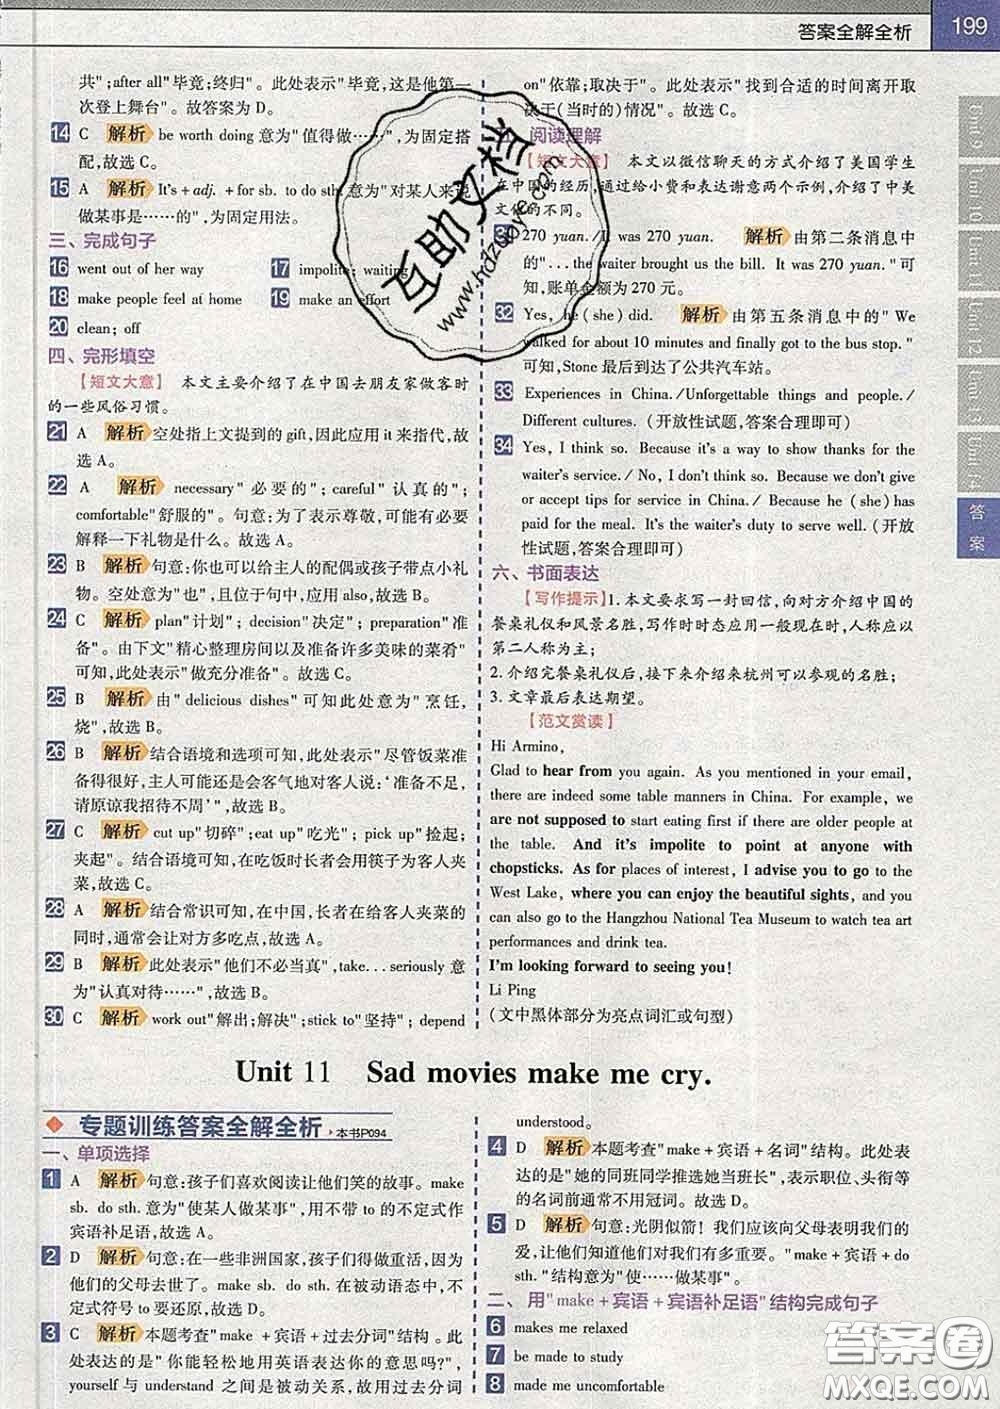 答案全解全析
199
共";after all"毕竟;终归"。此处表示"毕竟,这是他第一
次登上舞台"。故答案为 D。
14 C 解析 be worth doing 意为"值得做……",为固定搭
配,故选 C。
15 A 解析 It's + adj. + for sb. to do sth. 意为"对某人来说
做某事是……的",为固定用法。
三、完成句子
16 went out of her way 17 impolite; waiting
18 make people feel at home 19 make an effort
20 clean; off
四、完形填空
【短文大意】 本文主要介绍了在中国去朋友家做客时
的一些风俗习惯。
21 A 解析 空处指上文提到的 gift,因此应用 it 来指代,故
选 A。
22 A 解析 necessary"必要的"; careful"认真的";
comfortable"舒服的"。句意:为了表示尊敬,可能有必要
解释一下礼物是什么。故选 A。
23 B 解析 句意:你也可以给主人的配偶或孩子带点小礼
物。空处意为"也",且位于句中,应用 also,故选 B。
24 C 解析 plan"计划"; decision"决定"; preparation"准
备"。由下文"精心整理房间以及准备许多美味的菜肴"
可知,此处表示"做充分准备"。故选 C。
25 B 解析 由" delicious dishes"可知此处意为"烹饪,
烧",故选 B。
26 B 解析 结合语境和选项可知,此处表示"尽管饭菜准
备得很好,主人可能还是会客气地对客人说:'准备不足,
请原谅我招待不周'",故选 B。
27 C 解析 cut up"切碎";eat up"吃光"; pick up"捡起;
夹起"。结合语境可知,在吃饭时长者会用筷子为客人夹
菜,故选 C。
28 A 解析 结合常识可知,在中国,长者在给客人夹菜的
同时,通常会让对方多吃点,故选 A。
29 B 解析 此处表示"他们不必当真",take... seriously 意
为"认真对待……",故选 B。
30 C 解析 work out"解出;解决";stick to"坚持"; depend
on"依靠;取决于"。此处表示"找到合适的时间离开取
决于(当时的)情况"。故选 C。
阅读理解
【短文大意】 本文以微信聊天的方式介绍了美国学生
在中国的经历,通过给小费和表达谢意两个示例,介绍了中美
文化的不同。
31 270 yuan. /It was 270 yuan. 解析 由第二条消息中
的"... the waiter brought us the bill. It was 270 yuan."可
知,账单金额为 270 元。
32 Yes, he (she) did. 解析 由第五条消息中的" We
walked for about 10 minutes and finally got to the bus stop. "
可知,Stone 最后到达了公共汽车站。
33 Experiences in China. /Unforgettable things and people. /
Different cultures. (开放性试题,答案合理即可)
34 Yes, I think so. Because it's a way to show thanks for the
waiter's service. / No, I don't think so. Because we don't give
or accept tips for service in China. / Because he (she) has
paid for the meal. It's the waiter's duty to serve well. (开放
性试题,答案合理即可)
六、书面表达
【写作提示】1. 本文要求写一封回信,向对方介绍中国的
餐桌礼仪和风景名胜,写作时时态应用一般现在时,人称应以
第二人称为主;
2. 介绍完餐桌礼仪后,接下来介绍来杭州可以参观的名胜;
3. 文章最后表达期望。
【范文赏读】
Hi Armino,
Glad to hear from you again. As you mentioned in your email,
there are indeed some table manners in China. For example, we
are not supposed to start eating first if there are older people at
the table. And it's impolite to point at anyone with
chopsticks. As for places of interest, I advise you to go to the
West Lake, where you can enjoy the beautiful sights, and you
can also go to the Hangzhou National Tea Museum to watch tea art
performances and drink tea.
I'm looking forward to seeing you!
Li Ping
(文中黑体部分为亮点词汇或句型)
Unit 9
Unit 10
Unit 11
Unit 12
Unit 13
Unit 14
答案
互助文档
www.hdzuoye.com
Unit 11 Sad movies make me cry.
专题训练答案全解全析 · 本书P094
一、单项选择
1 A 解析 句意:孩子们喜欢阅读让他们笑的故事。make
sb. do sth. 意为"使某人做某事",用不带 to 的不定式作
宾语补足语,故选 A。
2 D 解析 句意:在一些非洲国家,孩子们得做重活,因为
他们的父母去世了。make sb. do sth. 在被动语态中,不
定式符号 to 要还原,故选 D。
3 C 解析 本题考查"make + 宾语 + 过去分词"结构。此
处表达的是"你能轻松地用英语表达你的意思吗?",
yourself 与 understand 之间是被动关系,故用过去分词
understood。
4 D 解析 本题考查"make + 宾语 + 名词"结构。此处表
达的是"她的同班同学推选她当班长",表示职位、头衔等
的名词前通常不用冠词。故选 D。
5 D 解析 句意:光阴似箭! 我们应该向父母表明我们的
爱,让他们知道他们对我们有多重要。"make + 宾语 + do
sth. "结构意为"使……做某事"。
二、用"make + 宾语 + 宾语补足语"结构完成句子
6 makes me relaxed
7 be made to study
8 made me uncomfortable
答案圈
MXQE.COM